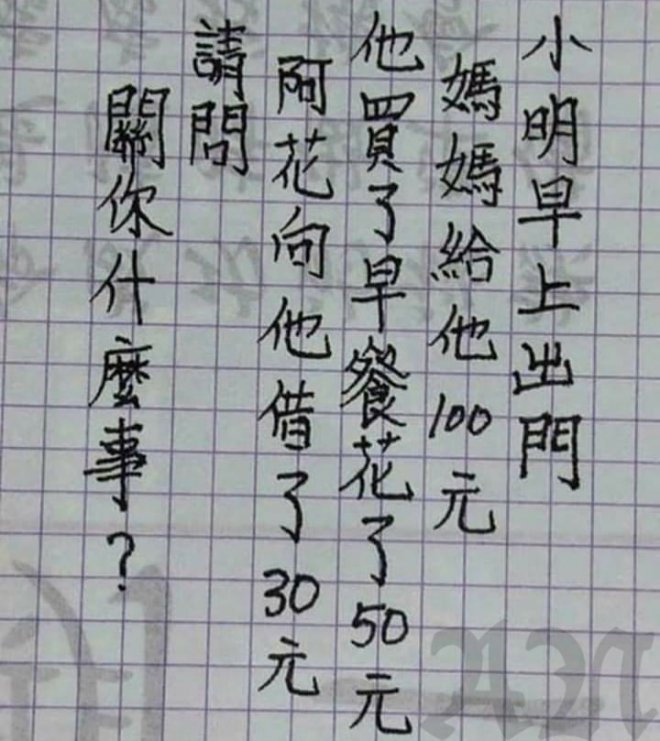 小明早上出門
媽媽給他100元
他買了早餐花了50元
阿花向他借了30元
請問
關你什麼事？